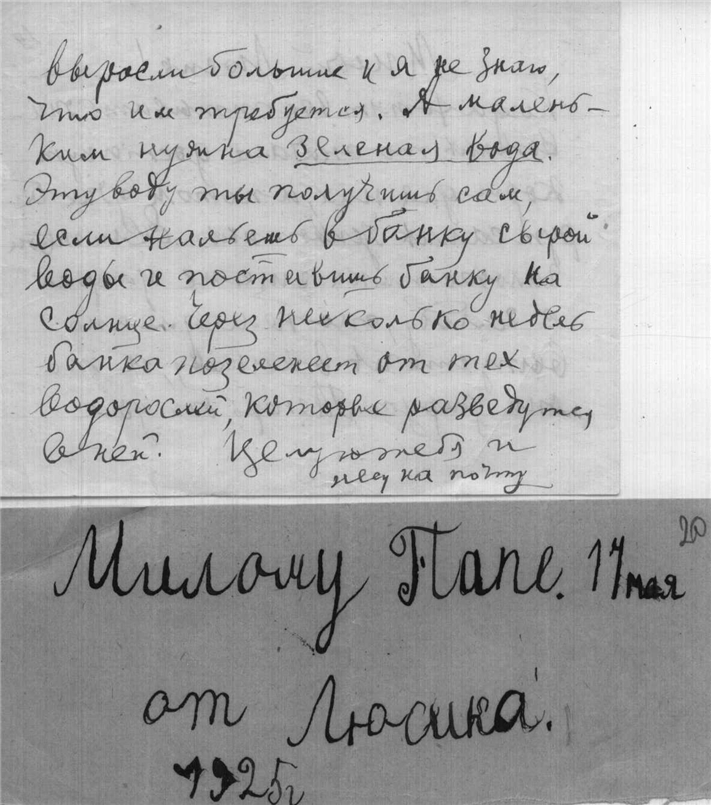 выросли большие и я не знаю,
что им требуется. А малень-
ким нужна зеленая вода.
Эту воду ты получишь сам,
если нальешь в банку сырой
воды и поставишь банку на
солнце. Через несколько недель
банка позеленеет от тех
водорослей, которые разведутся
в ней. Целую тебя и
несу на почту
20
Милому Папе. 17 мая
от Люсика.
1925г